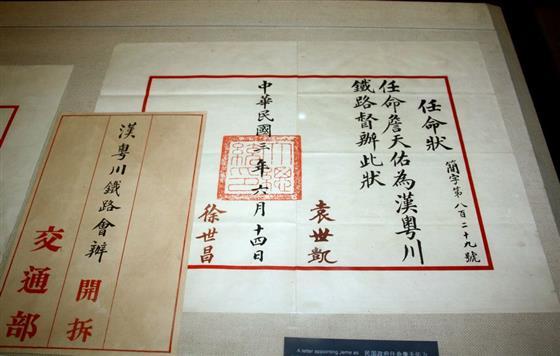 任命狀
簡字第八百二十九號
任命詹天佑為漢粵川
鐵路督辦此狀
袁世凱
中華民國三年六月十四日
徐世昌
漢粵川鐵路會辦
開拆
交通部
A letter appointing Jeme as